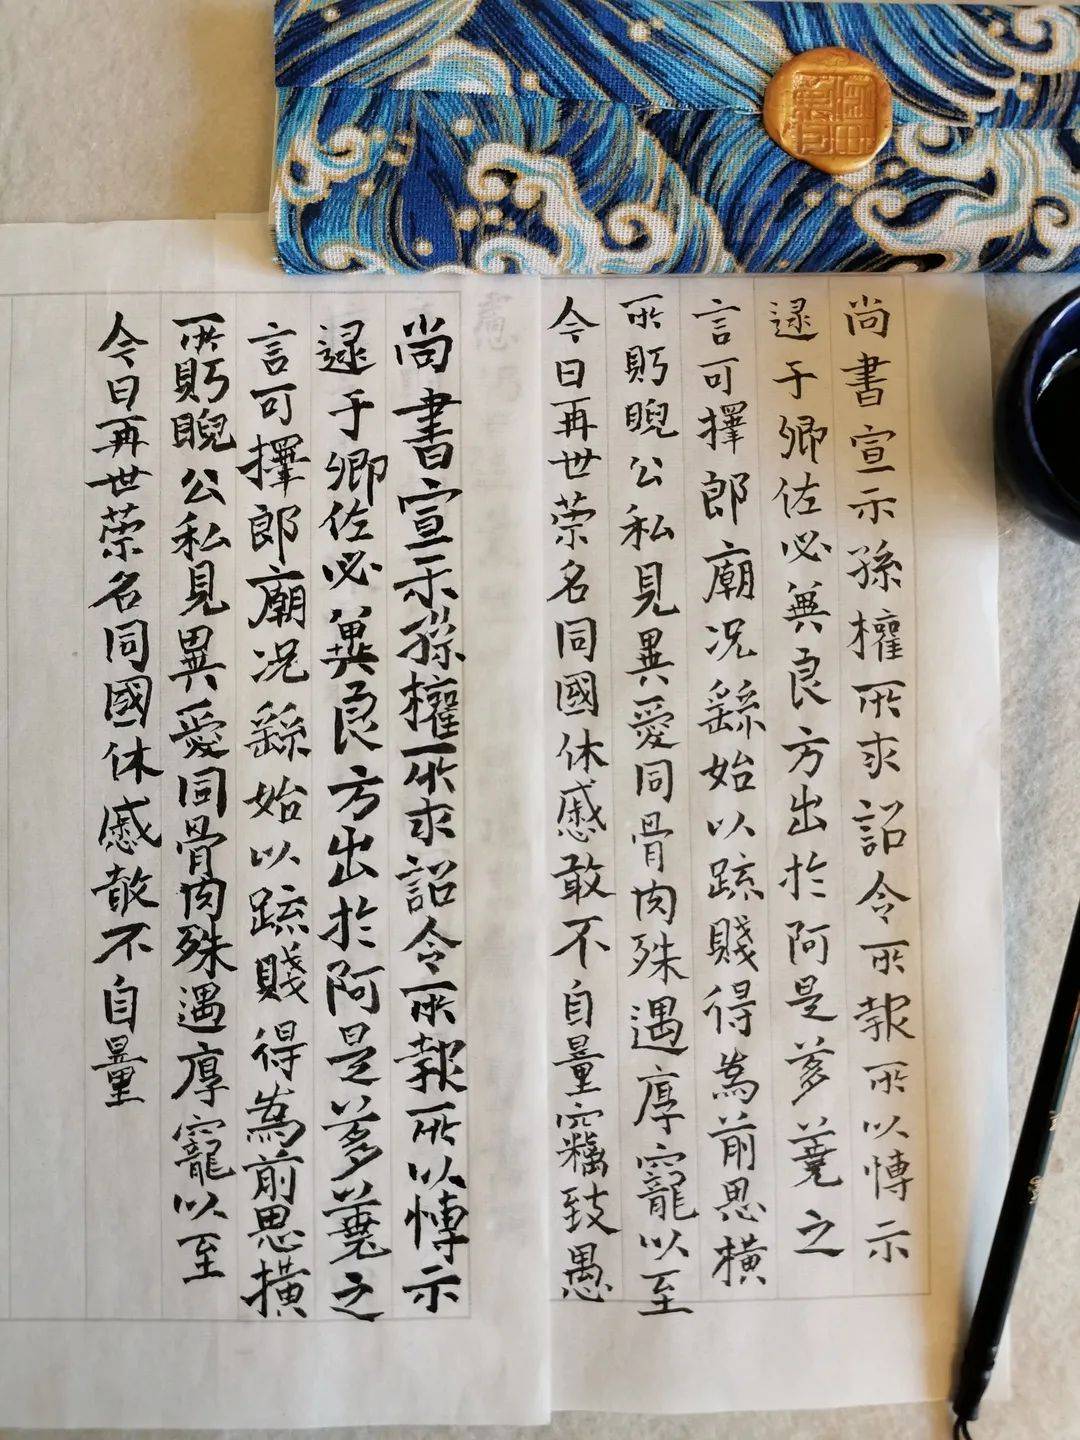 尚書宣示孫權所求詔令所報所以博示
逮于卿佐必冀良方出於阿是芻蕘之
言可擇郎廟況繇始以疏賤得為前恩橫
所眄睨公私見異愛同骨肉殊遇厚寵以至
今日再世榮名同國休慼敢不自量竊致愚
尚書宣示孫權所求詔令所報所以博示
逮于卿佐必冀良方出於阿是芻蕘之
言可擇郎廟況繇始以疏賤得為前恩橫
所眄睨公私見異愛同骨肉殊遇厚寵以至
今日再世榮名同國休慼敢不自量